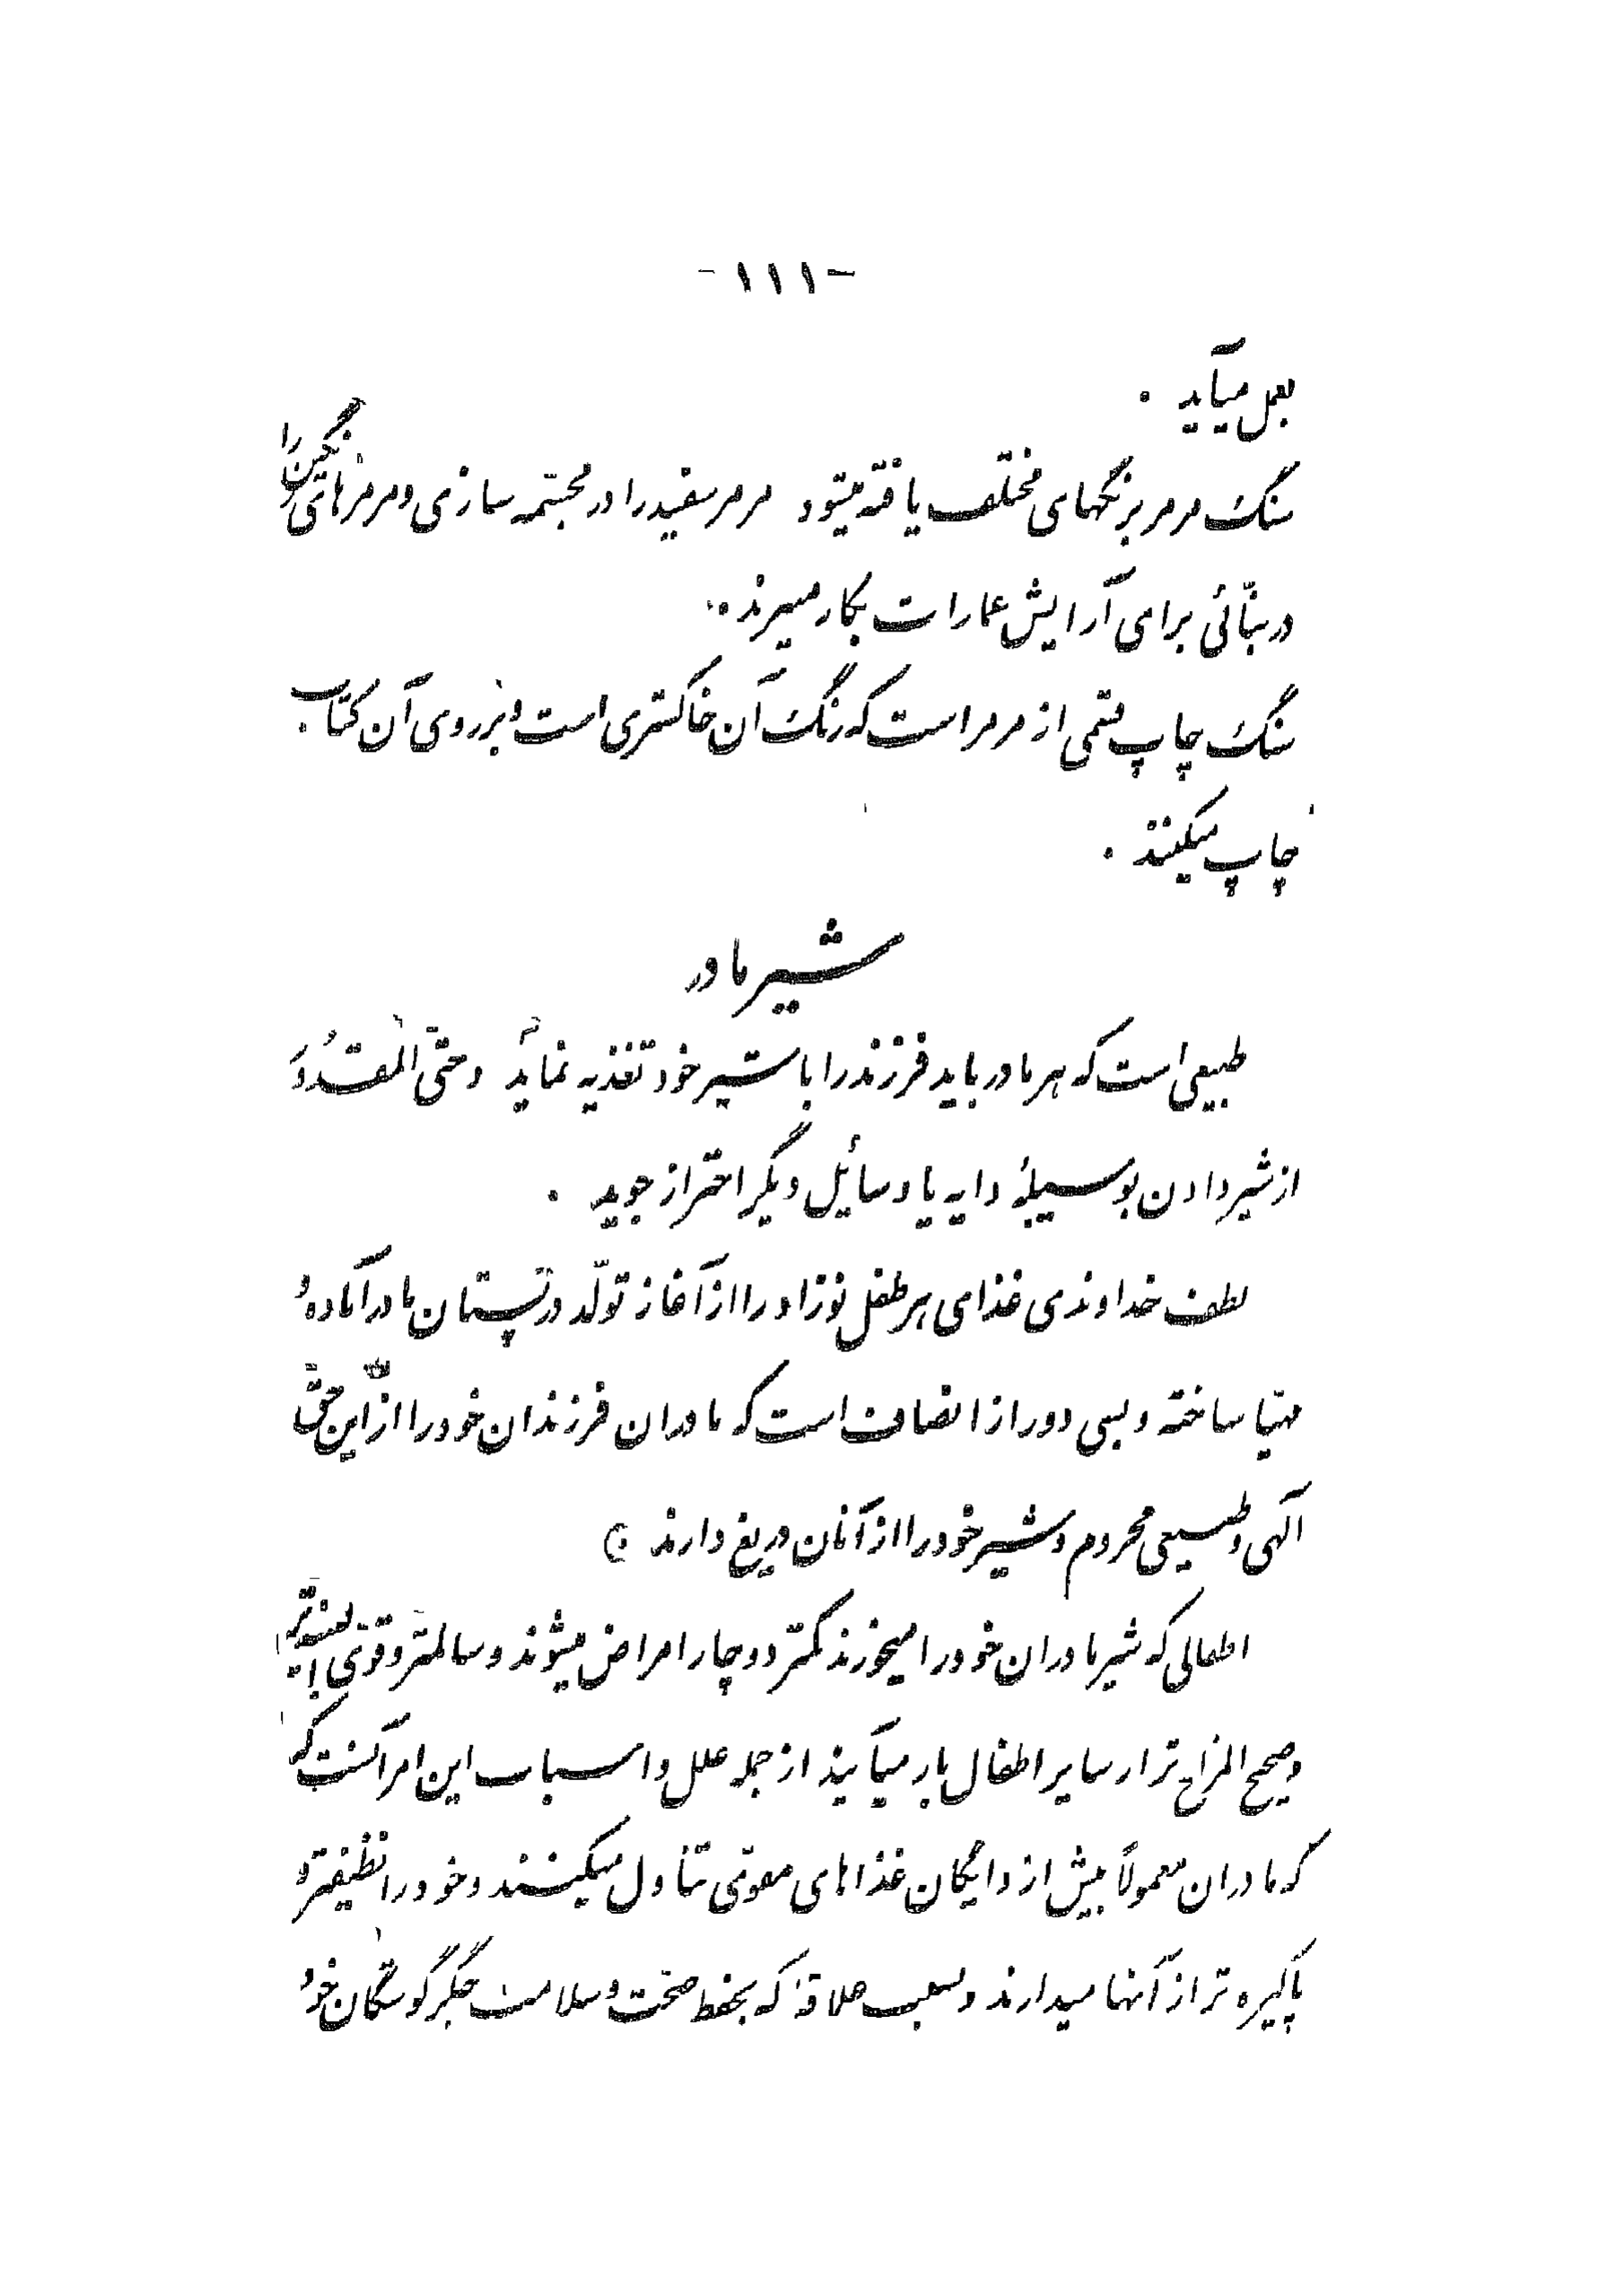 -۱۱۱-
بعمل میآید .
سنگ مرمر برنگهای مختلف یافته میشود مرمر سفید را در مجسّمه سازی و مرمرهای رنگین را
در بنّائی برای آرایش عمارات بکار میبرند .
سنگ چاپ قسمی از مرمر است که رنگ آن خاکستری است و بر روی آن کتاب
چاپ میکنند .
شیر مادر
طبیعی است که هر مادر باید فرزند را با شیر خود تغذیه نماید و حتّی المقدُور
از شیر دادن بوسیلهٔ دایه یا وسائل دیگر احتراز جوید .
لطف خداوندی غذای هر طفل نوزاد را از آغاز تولّد در پستان مادر آماده و
مهیّا ساخته و بسی دور از انصاف است که مادران فرزندان خود را از این حقّ
آلهی و طبیعی محروم و شیر خود را از آنان دریغ دارند
اطفالی که شیر مادران خود را میخورند کمتر دوچار امراض میشوند و سالمتر و قوی بنیه تر
و صحیح المزاج تر از سایر اطفال بار میآیند از جمله علل و اسباب این امر آنست که
که مادران معمولاً بیش از دایگان غذاهای مقوّی تناول میکنند و خود را نظیفتر و
پاکیزه تر از آنها میدارند و بسبب علاقهٔ که بحفظ صحّت و سلامت جگر گوشگان خود